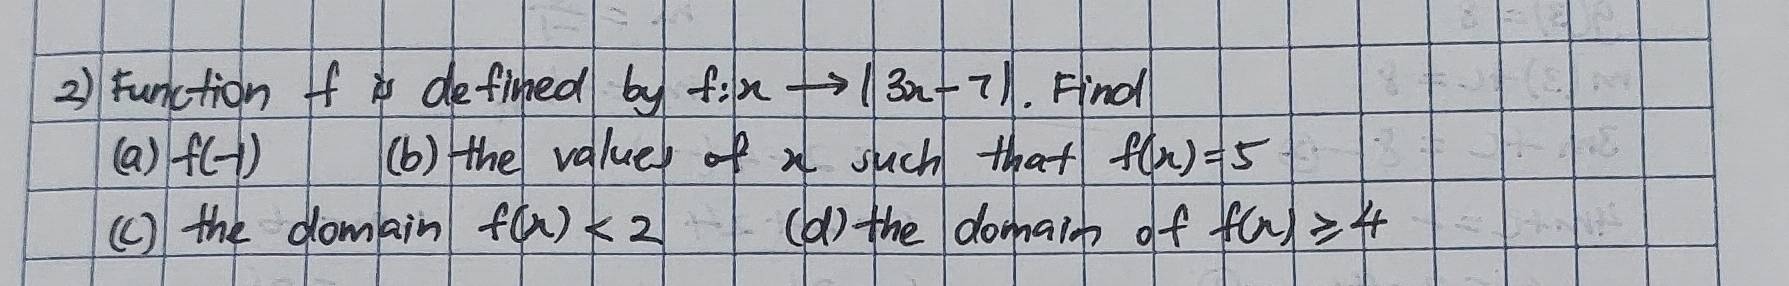 2) Function f is defined by f:x → |3x-7|. Find
(a) f(-1) (b) the values of x such that f(x)=5
(c) the domain f(x) < 2 (d) the domain of f(x) ≥ 4